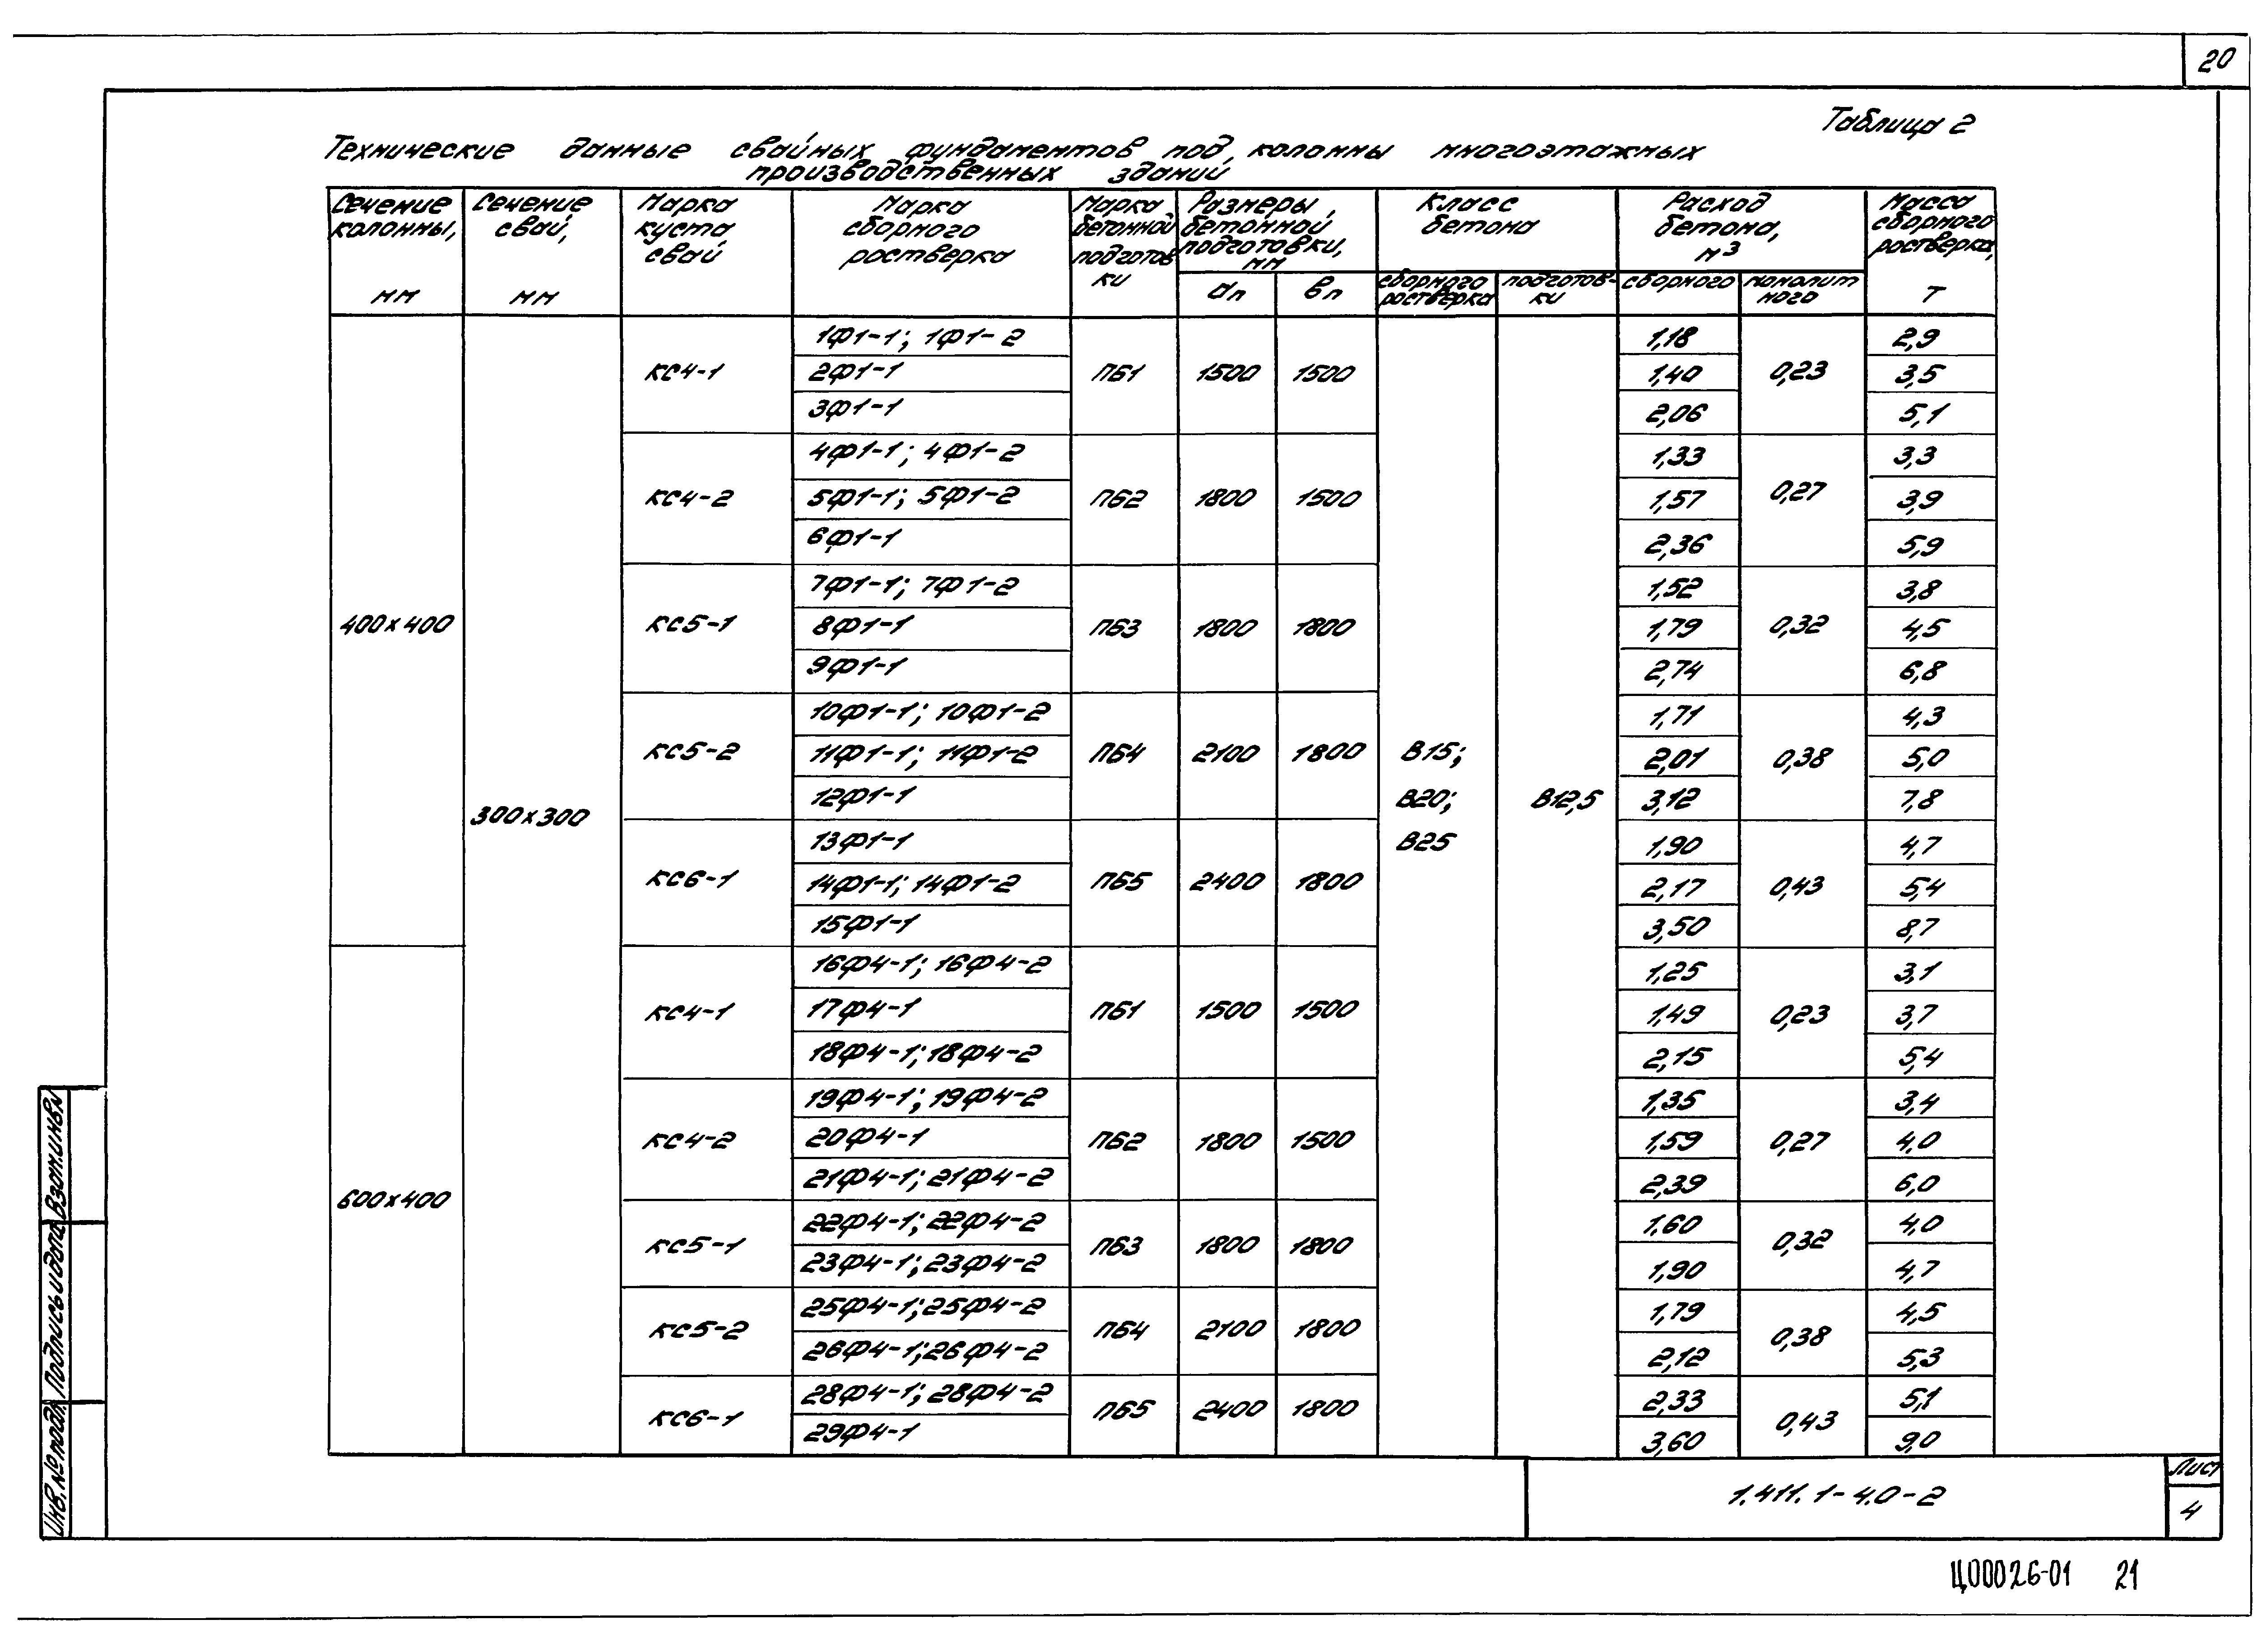 20
Таблица 2
Технические данные свайных фундаментов под колонны многоэтажных
производственных зданий
Сечение колонны, мм
Сечение свай, мм
Марка куста свай
Марка сборного ростверка
Марка бетонной подготовки
Размеры бетонной подготовки, мм
aп
bп
Класс бетона
сборного ростверка
подготовки
Расход бетона, м³
сборного
монолитного
Масса сборного ростверка, т
400×400
300×300
В15;
В20;
В25
В12,5
КС4-1 1Ф1-1; 1Ф1-2 ПБ1 1500 1500 1,18 0,23 2,9
2Ф1-1 1,40 3,5
3Ф1-1 2,06 5,1
КС4-2 4Ф1-1; 4Ф1-2 ПБ2 1800 1500 1,33 0,27 3,3
5Ф1-1; 5Ф1-2 1,57 3,9
6Ф1-1 2,36 5,9
КС5-1 7Ф1-1; 7Ф1-2 ПБ3 1800 1800 1,52 0,32 3,8
8Ф1-1 1,79 4,5
9Ф1-1 2,74 6,8
КС5-2 10Ф1-1; 10Ф1-2 ПБ4 2100 1800 1,71 0,38 4,3
11Ф1-1; 11Ф1-2 2,01 5,0
12Ф1-1 3,12 7,8
КС6-1 13Ф1-1 ПБ5 2400 1800 1,90 0,43 4,7
14Ф1-1; 14Ф1-2 2,17 5,4
15Ф1-1 3,50 8,7
600×400
КС4-1 16Ф4-1; 16Ф4-2 ПБ1 1500 1500 1,25 0,23 3,1
17Ф4-1 1,49 3,7
18Ф4-1; 18Ф4-2 2,15 5,4
КС4-2 19Ф4-1; 19Ф4-2 ПБ2 1800 1500 1,35 0,27 3,4
20Ф4-1 1,59 4,0
21Ф4-1; 21Ф4-2 2,39 6,0
КС5-1 22Ф4-1; 22Ф4-2 ПБ3 1800 1800 1,60 0,32 4,0
23Ф4-1; 23Ф4-2 1,90 4,7
КС5-2 25Ф4-1; 25Ф4-2 ПБ4 2100 1800 1,79 0,38 4,5
26Ф4-1; 26Ф4-2 2,12 5,3
КС6-1 28Ф4-1; 28Ф4-2 ПБ5 2400 1800 2,33 0,43 5,1
29Ф4-1 3,60 9,0
Инв. № подл.
Подпись и дата
Взам. инв. №
1.411.1-4.0-2
Лист
4
Ц00026-01 21